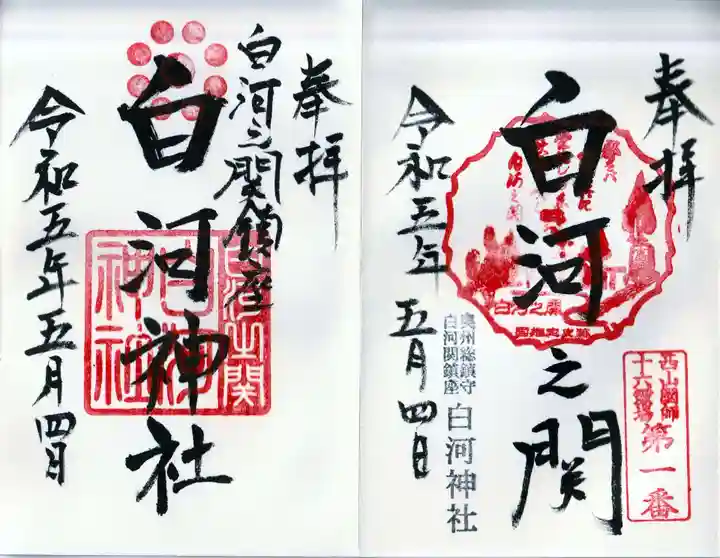 奉拝
白河之関鎮座
白河神社
令和五年五月四日
神社
白河之関
奉拝
白河之関
令和五年五月四日
白河之関
国指定史跡
奥州総鎮守
白河関鎮座
白河神社
西山國師
十六霊場
第一番